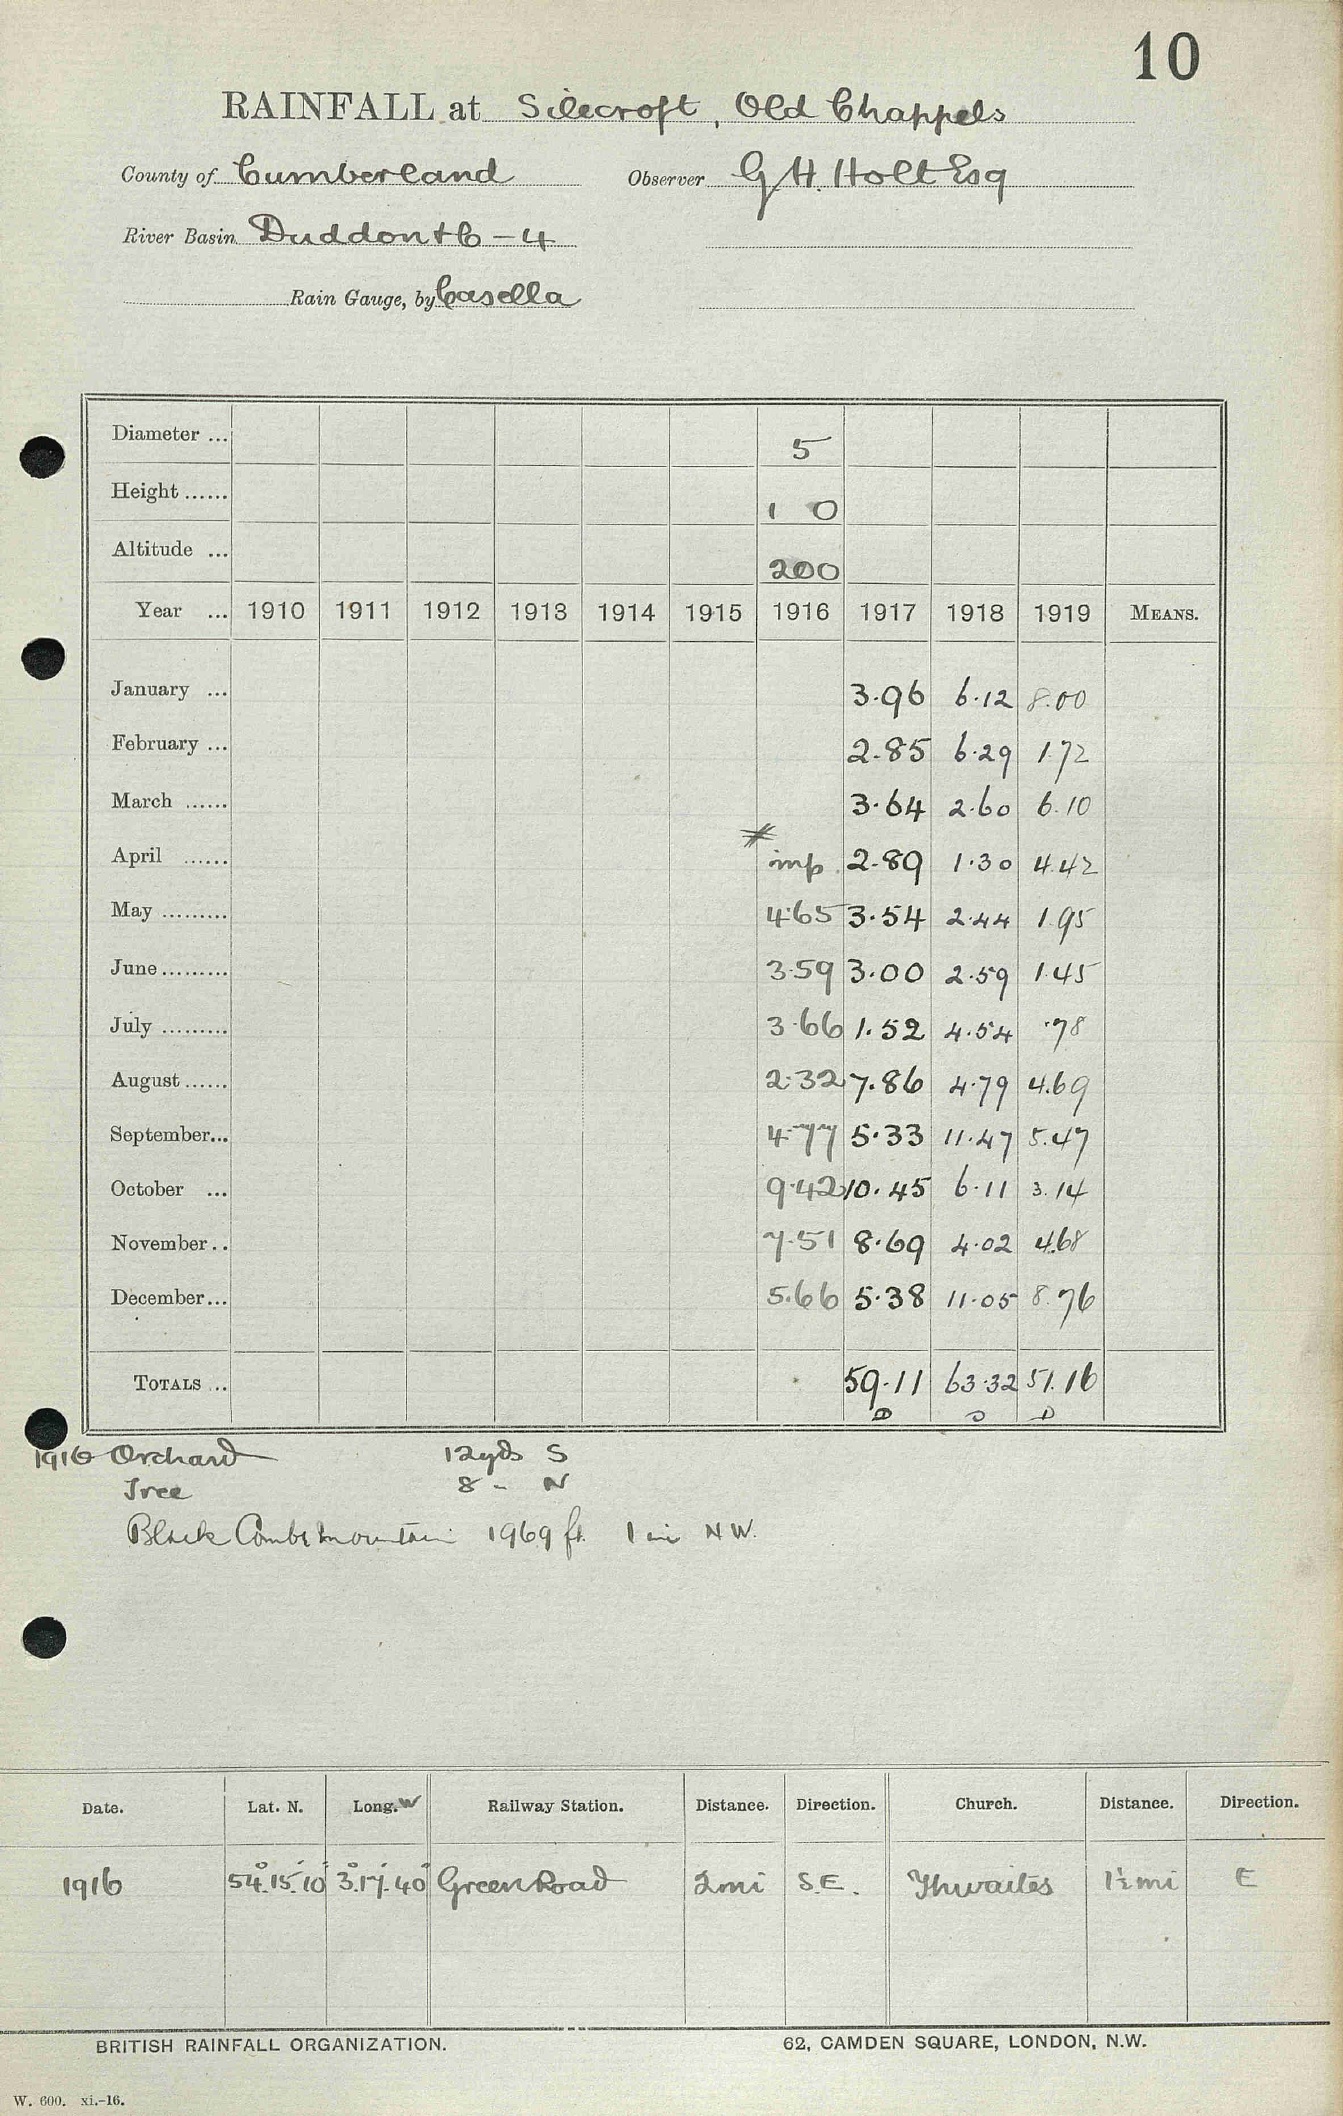 10
RAINFALL at Silecroft, Old Chappels
County of Cumberland Observer G H. Holt Esq
River Basin Duddon & C - 4
Rain Gauge, by Casella
Diameter ... 5
Height ...... 1 0
Altitude ... 200
Year ... 1910 1911 1912 1913 1914 1915 1916 1917 1918 1919 MEANS.
January ... 3.96 6.12 8.00
February ... 2.85 6.29 1.72
March ...... 3.64 2.60 6.10
April ...... imp 2.89 1.30 4.42
May ......... 4.65 3.54 2.44 1.95
June ......... 3.59 3.00 2.59 1.45
July ......... 3.66 1.52 4.54 .78
August ...... 2.32 7.86 4.79 4.69
September... 4.77 5.33 11.47 5.47
October ... 9.42 10.45 6.11 3.14
November .. 7.51 8.69 4.02 4.68
December ... 5.66 5.38 11.05 8.76
TOTALS ... 59.11 63.32 51.16
D D D
1916 Orchard 12yds S
Tree 8 - N
Black Combe Mountain 1969 ft. 1 mi NW.
Date. Lat. N. Long. W Railway Station. Distance. Direction. Church. Distance. Direction.
1916 54°.15'.10" 3°.17'.40" Green Road 2mi S.E. Thwaites 1½mi E
BRITISH RAINFALL ORGANIZATION. 62, CAMDEN SQUARE, LONDON, N.W.
W. 600. xi.-16.